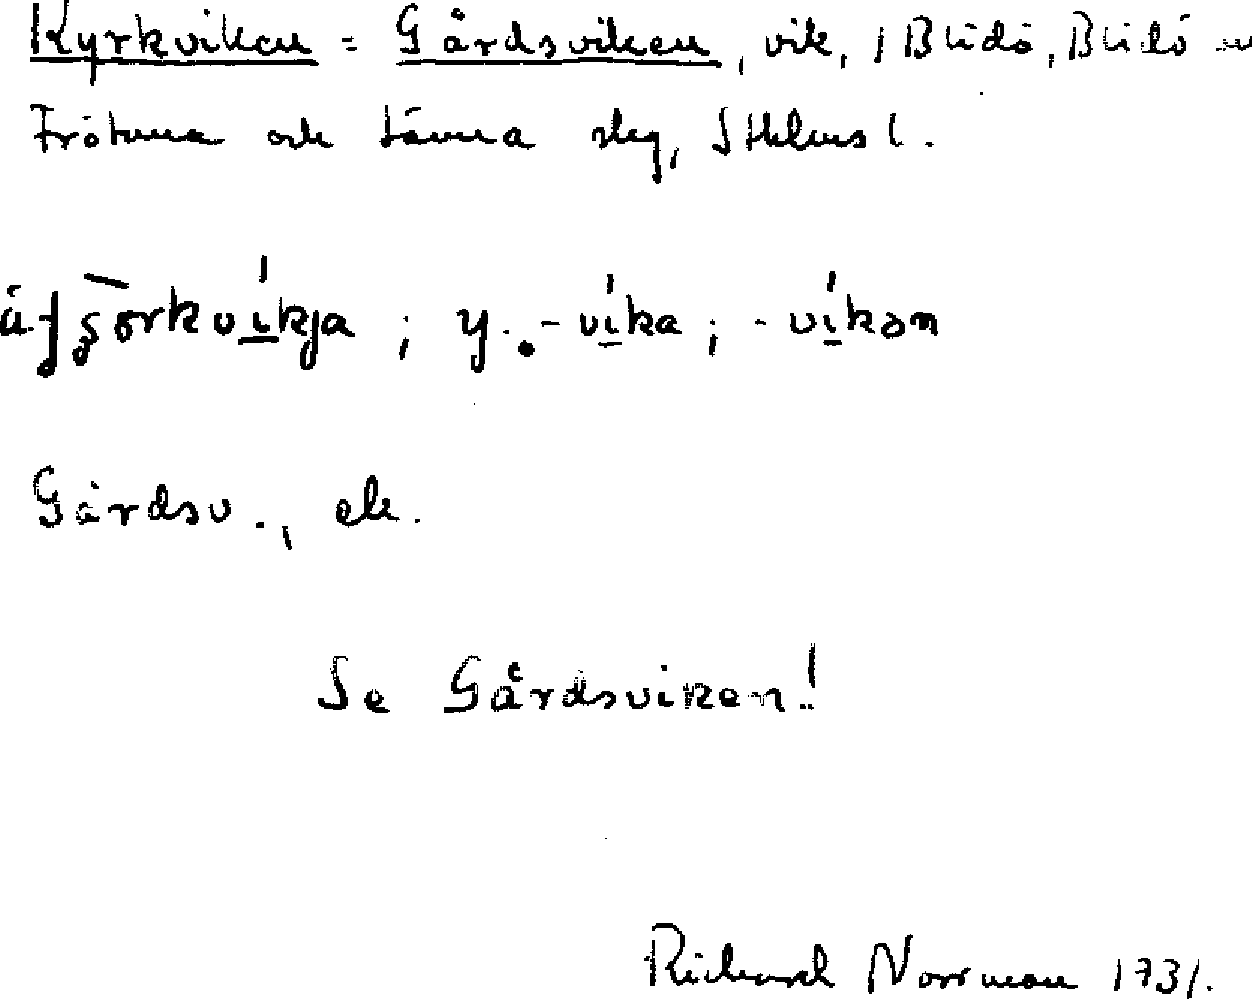 Kyrkviken = Gårdsviken, vik, i Blidö, Blidö sn
Frötuna och Länna skg, Sthlms l.
ä. ʃörkvikja ; y. -vika ; -vikən
Gårdsv., ek.
Se Gårdsviken!
Richard Norrman 1931.